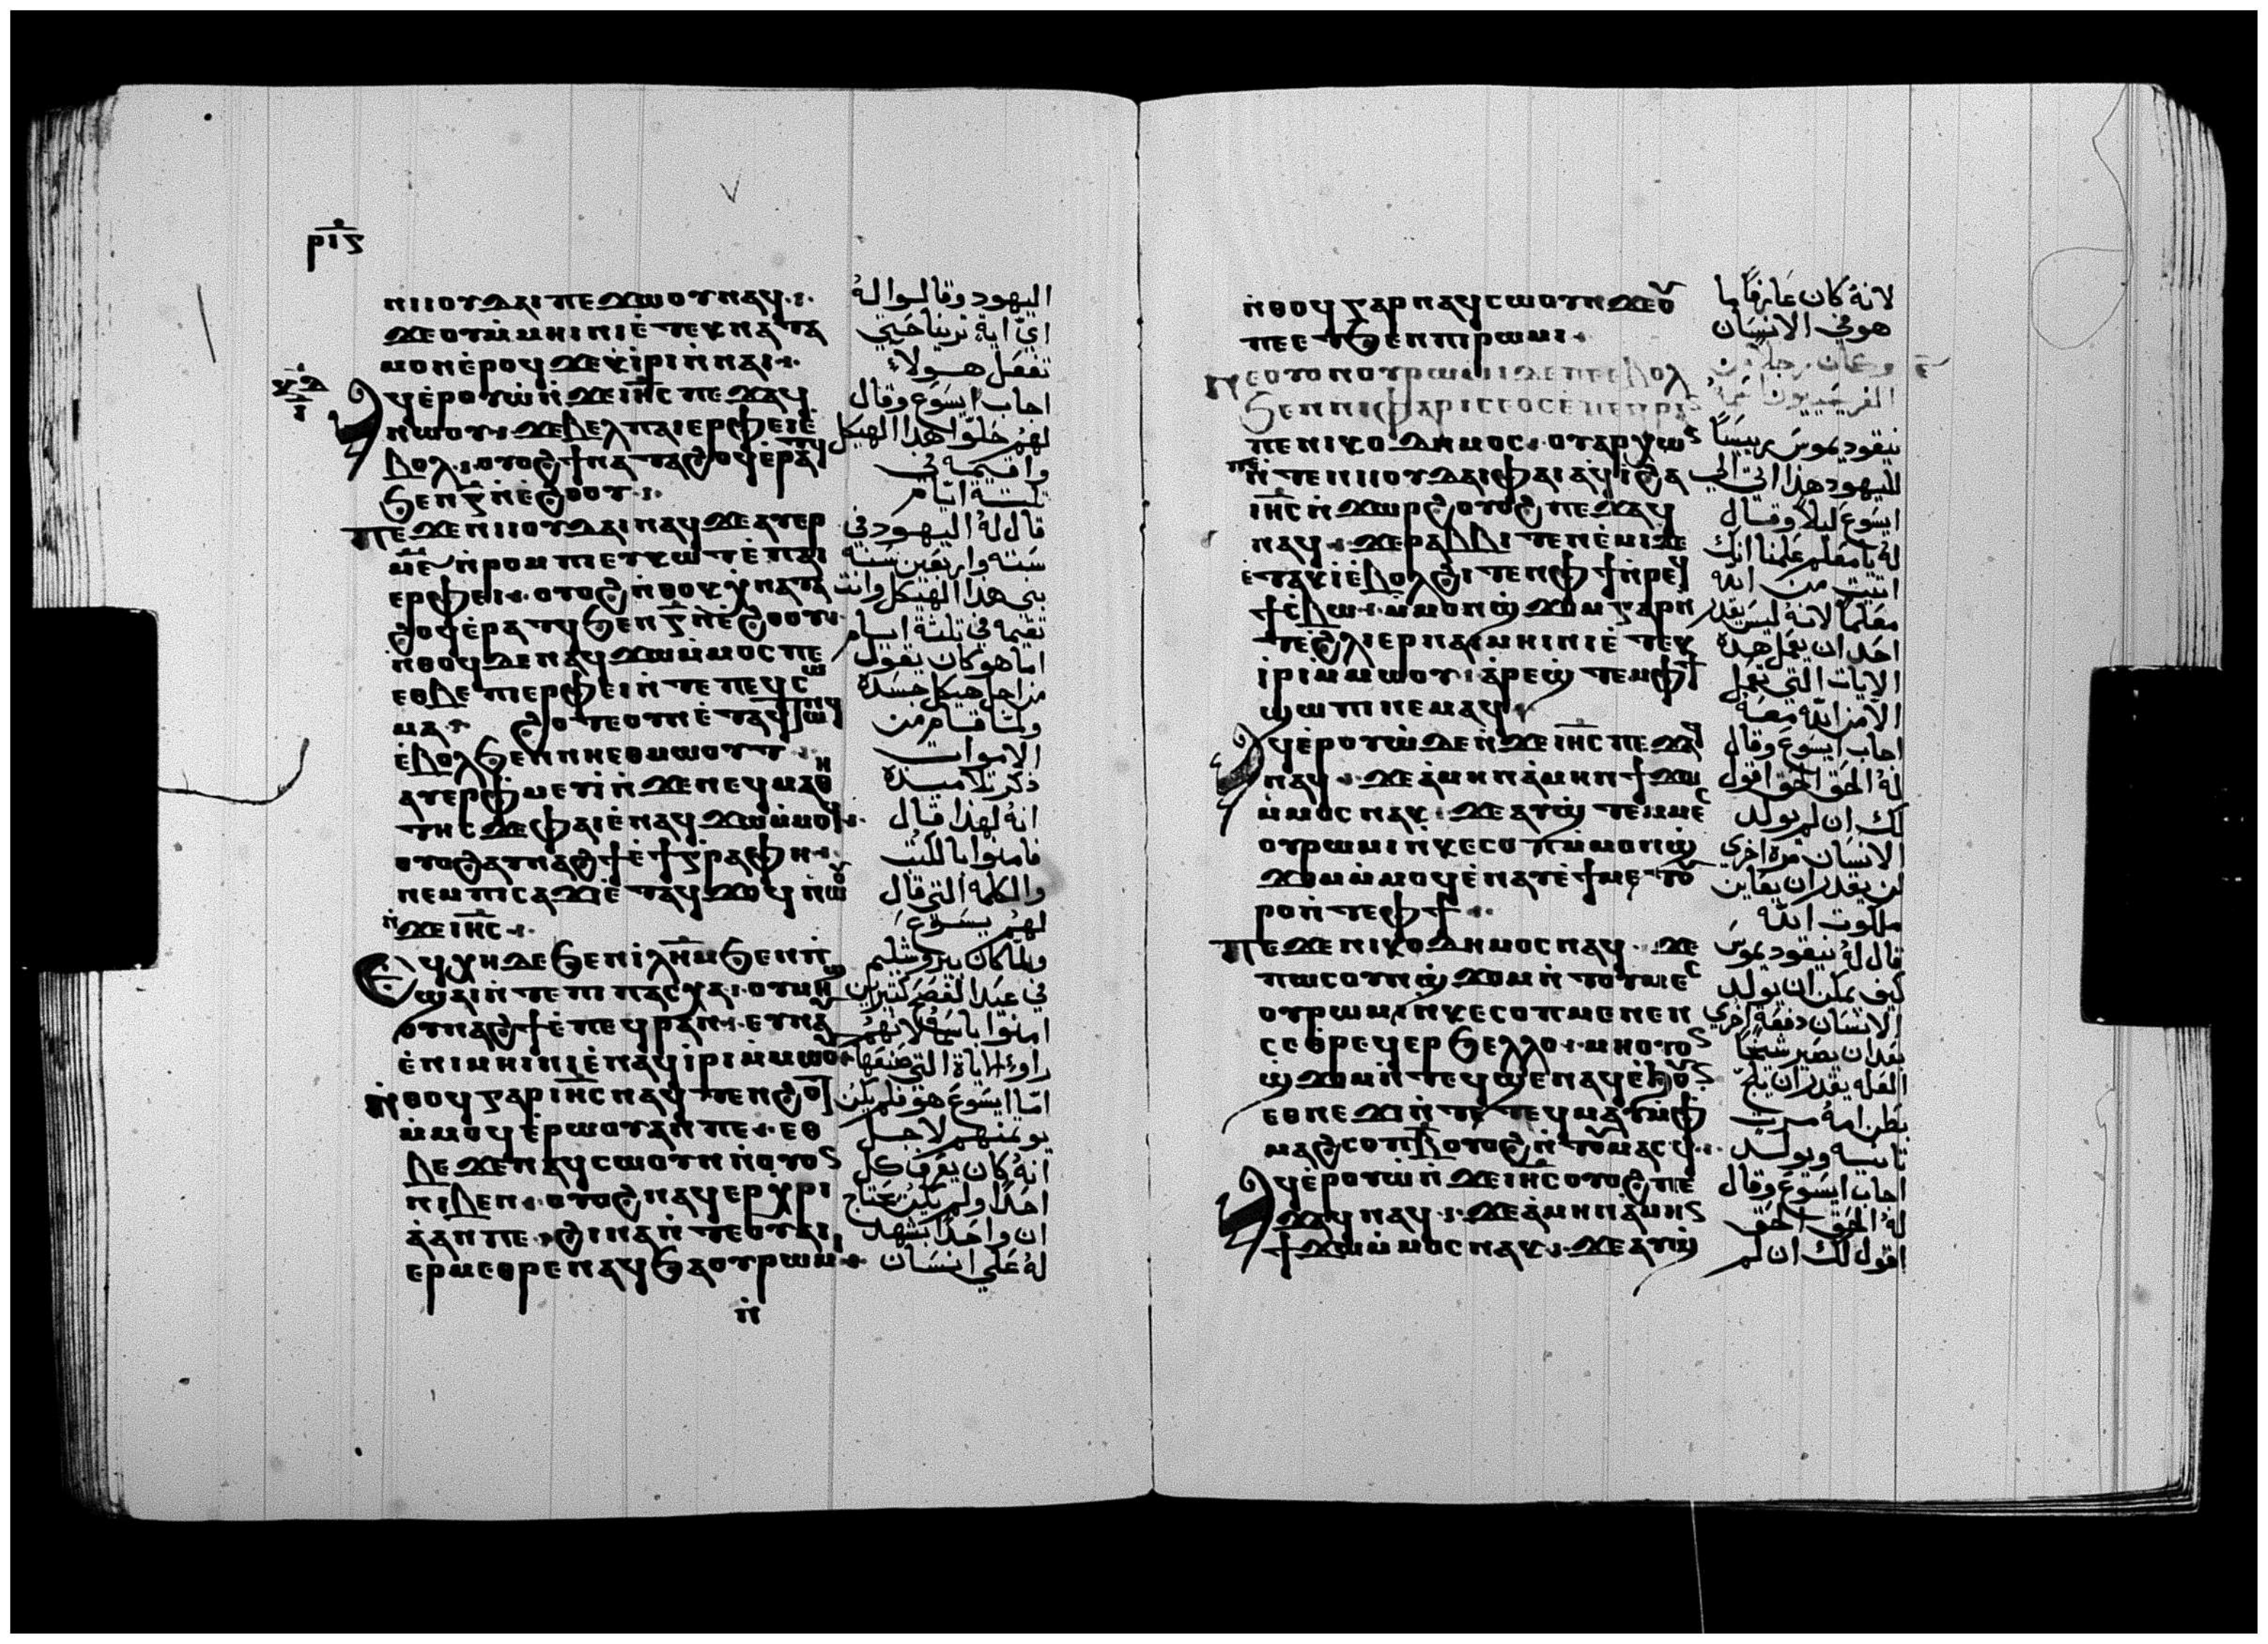 ⲣⲓⲋ
ⲛⲓⲓⲟⲩⲇⲁⲓ ⲡⲉϫⲱⲟⲩ ⲛⲁϥ
ϫⲉ ⲟⲩⲙ̇ⲙⲏⲓⲛⲓ ⲉ̇ⲧⲉⲕⲛⲁⲧⲁ
ⲙⲟⲛ ⲉ̇ⲣⲟϥ ϫⲉ ⲕ̇ⲓⲣⲓ ⲛ̇ⲛⲁⲓ
ⲁϥⲉ̇ⲣⲟⲩⲱ̇ ⲛ̇ϫⲉ ⲓⲏⲥ ⲡⲉϫⲁϥ
ⲛⲱⲟⲩ ϫⲉ ⲃⲉⲗ ⲡⲁⲓⲉⲣⲫⲉⲓ ⲉ̇
ⲃⲟⲗ ⲟⲩⲟϩ ϯⲛⲁⲧⲁϩⲟϥ ⲉ̇ⲣⲁⲧϥ
ϧⲉⲛ ⲅ̅ ⲛ̇ⲉ̇ϩⲟⲟⲩ
ⲡⲉϫⲉ ⲛⲓⲓⲟⲩⲇⲁⲓ ⲛⲁϥ ϫⲉ ⲁⲩⲉⲣ
ⲙ̅ⲋ̅ ⲛ̇ⲣⲟⲙⲡⲓ ⲉⲩⲕⲱⲧ ⲉ̇ⲡⲁⲓ
ⲉⲣⲫⲉⲓ ⲟⲩⲟϩ ⲛ̇ⲑⲟⲕ ⲭ̇ⲛⲁⲧⲁ
ϩⲟϥ ⲉ̇ⲣⲁⲧϥ ϧⲉⲛ ⲅ̅ ⲛ̇ⲉ̇ϩⲟⲟⲩ
ⲛ̇ⲑⲟϥ ⲇⲉ ⲛⲁϥϫⲱ ⲙ̇ⲙⲟⲥ ⲡⲉ
ⲉⲑⲃⲉ ⲡⲓⲉⲣⲫⲉⲓ ⲛ̇ⲧⲉ ⲡⲉϥⲥⲱ
ⲙⲁ ϩⲟⲧⲉ ⲟⲩⲛ ⲉ̇ⲧⲁϥⲧⲱⲛϥ
ⲉ̇ⲃⲟⲗ ϧⲉⲛ ⲛⲏⲉⲑⲙⲱⲟⲩⲧ
ⲁⲩⲉⲣⲫⲙⲉⲩⲓ̇ ⲛ̇ϫⲉ ⲛⲉϥⲙⲁⲑⲏ
ⲧⲏⲥ ϫⲉ ⲫⲁⲓ ⲉ̇ⲛⲁϥϫⲱ ⲙ̇ⲙⲟϥ
ⲟⲩⲟϩ ⲁⲩⲛⲁϩϯ ⲉ̇ϯⲅ̇ⲣⲁⲫⲏ
ⲛⲉⲙ ⲡⲓⲥⲁϫⲓ ⲉ̇ⲧⲁϥϫⲟϥ ⲛⲱⲟⲩ
ⲛ̇ϫⲉ ⲓⲏⲥ
ⲉϥⲭⲏ ⲇⲉ ϧⲉⲛ ⲓⲗⲏⲙ ϧⲉⲛ ⲡ
ϣⲁⲓ ⲛ̇ⲧⲉ ⲡⲓⲡⲁⲥⲭⲁ ⲟⲩⲙⲏϣ
ⲁⲩⲛⲁϩϯ ⲉ̇ⲡⲉϥⲣⲁⲛ ⲉⲩⲛⲁⲩ
ⲉ̇ⲛⲓⲙⲏⲓⲛⲓ ⲉ̇ⲛⲁϥⲓ̇ⲣⲓ ⲙ̇ⲙⲱⲟⲩ
ⲛ̇ⲑⲟϥ ⲅⲁⲣ ⲓⲏⲥ ⲛⲁϥⲧⲉⲛϩⲟⲩⲧ
ⲙ̇ⲙⲟϥ ⲉ̇ⲣⲱⲟⲩ ⲁⲛ ⲡⲉ ⲉⲑ
ⲃⲉ ϫⲉ ⲛⲁϥⲥⲱⲟⲩⲛ ⲛ̇ⲟⲩⲟⲛ
ⲛⲓⲃⲉⲛ ⲟⲩⲟϩ ⲛⲁϥⲉⲣⲭⲣⲓ
ⲁ̇ ⲁⲛ ⲡⲉ ϩⲓⲛⲁ ⲛ̇ⲧⲉ ⲟⲩⲁⲓ
ⲉⲣⲙⲉⲑⲣⲉ ⲛⲁϥ ϧⲁ ⲟⲩⲣⲱⲙⲓ
ⲛ̇
اليهود وقالوا له
اي اية ترينا حتي
تفعل هولاء
اجاب ايسوع وقال
لهم حلوا هذا الهيكل
واقيمه في
ثلثة ايام
قال له اليهود في
سته واربعين سنة
بني هذا الهيكل وانت
تقيمه في ثلثة ايام
اما هو كان يقول
من اجل هيكل جسده
ولما قام من
الاموات
ذكر تلاميذه
انه لهذا قال
فامنوا بالكتب
والكلمة التي قال
لهم يسوع
ولما كان بيروشليم
في عيد الفصح كثيرين
امنوا باسمه لانهم
راوا الاياة التي صنعها
اما ايسوع هو فلم يكن
يومنهم لاجل
انه كان يعرف كل
احد ولم يكن يحتاج
ان واحدا يشهد
له علي انسان
ⲛ̇ⲑⲟϥ ⲅⲁⲣ ⲛⲁϥⲥⲱⲟⲩⲛ ϫⲉ ⲟⲩ
ⲡⲉⲧϧⲉⲛ ⲡⲓⲣⲱⲙⲓ
ⲛⲉ ⲟⲩⲟⲛ ⲟⲩⲣⲱⲙⲓ ⲇⲉ ⲡⲉ ⲉⲃⲟⲗ
ϧⲉⲛ ⲛⲓⲫⲁⲣⲓⲥⲉⲟⲥ ⲉ̇ⲡⲉϥⲣⲁⲛ
ⲡⲉ ⲛⲓⲕⲟⲇⲏⲙⲟⲥ ⲟⲩⲁⲣⲭⲱⲛ
ⲡⲉ ⲛ̇ⲧⲉ ⲛⲓⲓⲟⲩⲇⲁⲓ ⲫⲁⲓ ⲁϥⲓ̇ ϩⲁ
ⲓⲏⲥ ⲛ̇ϫⲱⲣϩ ⲟⲩⲟϩ ⲡⲉϫⲁϥ
ⲛⲁϥ ϫⲉ ⲣⲁⲃⲃⲓ ⲧⲉⲛⲉ̇ⲙⲓ ϫⲉ
ⲉ̇ⲧⲁⲕⲓ̇ ⲉ̇ⲃⲟⲗ ϩⲓⲧⲉⲛ ⲫϯ ⲛ̇ⲣⲉϥ
ϯⲥ̇ⲃⲱ ⲙ̇ⲙⲟⲛ ϣ̇ϫⲟⲙ ⲅⲁⲣ ⲛ̇
ⲧⲉ ϩ̇ⲗⲓ ⲉⲣ ⲛⲁⲓⲙⲏⲓⲛⲓ ⲉ̇ⲧⲉⲕ
ⲓ̇ⲣⲓ ⲙ̇ⲙⲱⲟⲩ ⲁ̇ⲣⲉϣⲧⲉⲙ ⲫϯ
ϣⲱⲡⲓ ⲛⲉⲙⲁϥ
ⲁϥⲉ̇ⲣⲟⲩⲱ̇ ⲇⲉ ⲛ̇ϫⲉ ⲓⲏⲥ ⲡⲉϫⲁϥ
ⲛⲁϥ ϫⲉ ⲁ̇ⲙⲏⲛ ⲁ̇ⲙⲏⲛ ϯϫⲱ
ⲙ̇ⲙⲟⲥ ⲛⲁⲕ ϫⲉ ⲁⲩϣ̇ⲧⲉⲙⲙⲉⲥ
ⲟⲩⲣⲱⲙⲓ ⲛ̇ⲕⲉⲥⲟⲡ ⲙ̇ⲙⲟⲛ ϣ̇
ϫⲟⲙ ⲙ̇ⲙⲟϥ ⲉ̇ⲛⲁⲩ ⲉ̇ϯⲙⲉⲧⲟⲩ
ⲣⲟ ⲛ̇ⲧⲉ ⲫϯ
ⲡⲉϫⲉ ⲛⲓⲕⲟⲇⲏⲙⲟⲥ ⲛⲁϥ ϫⲉ
ⲡⲱⲥ ⲟⲩⲛ ϣ̇ϫⲟⲙ ⲛ̇ⲧⲟⲩⲙⲉⲥ
ⲟⲩⲣⲱⲙⲓ ⲛ̇ⲕⲉⲥⲟⲡ ⲙⲉⲛⲉⲛ
ⲥⲑ̇ⲣⲉϥⲉⲣϧⲉⲗⲗⲟ ⲙⲏ ⲟⲩⲟⲛ
ϣ̇ϫⲟⲙ ⲛ̇ⲧⲉϥϣⲉ ⲛⲁϥ ⲉ̇ϧⲟⲩⲛ
ⲉⲑⲛⲉϫⲓ ⲛ̇ⲧⲉ ⲧⲉϥⲙⲁⲩ ⲙ̇ⲫ
ⲙⲁϩⲥⲟⲡ ⲃ̅ ⲟⲩⲟϩ ⲛ̇ⲧⲟⲩⲙⲁⲥϥ
ⲁϥⲉ̇ⲣⲟⲩⲱ̇ ⲛ̇ϫⲉ ⲓⲏⲥ ⲟⲩⲟϩ ⲡⲉ
ϫⲁϥ ⲛⲁϥ ϫⲉ ⲁ̇ⲙⲏⲛ ⲁ̇ⲙⲏⲛ
ϯϫⲱ ⲙ̇ⲙⲟⲥ ⲛⲁⲕ ϫⲉ ⲁⲩϣ̇
لانه كان عارفا ما
هو في الانسان
وكان رجلا من
الفريسيون اسمه
نيقوديموس رييسا
لليهود هذا اتي الي
ايسوع ليلا وقال
له يا معلم علمنا انك
اتيت من الله
معلما لانه ليس يقدر
احد ان يعمل هذه
الايات التي تعمل
الا من الله معه
اجاب ايسوع وقال
له الحق الحق اقول
لك ان لم يولد
الانسان مرة اخري
لن يقدر ان يعاين
ملكوت الله
قال له نيقوديموس
كيف يمكن ان يولد
الانسان دفعة اخري
بعد ان يصير شيخا
العله يقدر ان يلج
بطن امه مرة
ثانيه ويولد
اجاب ايسوع وقال
له الحق الحق
اقول لك ان لم